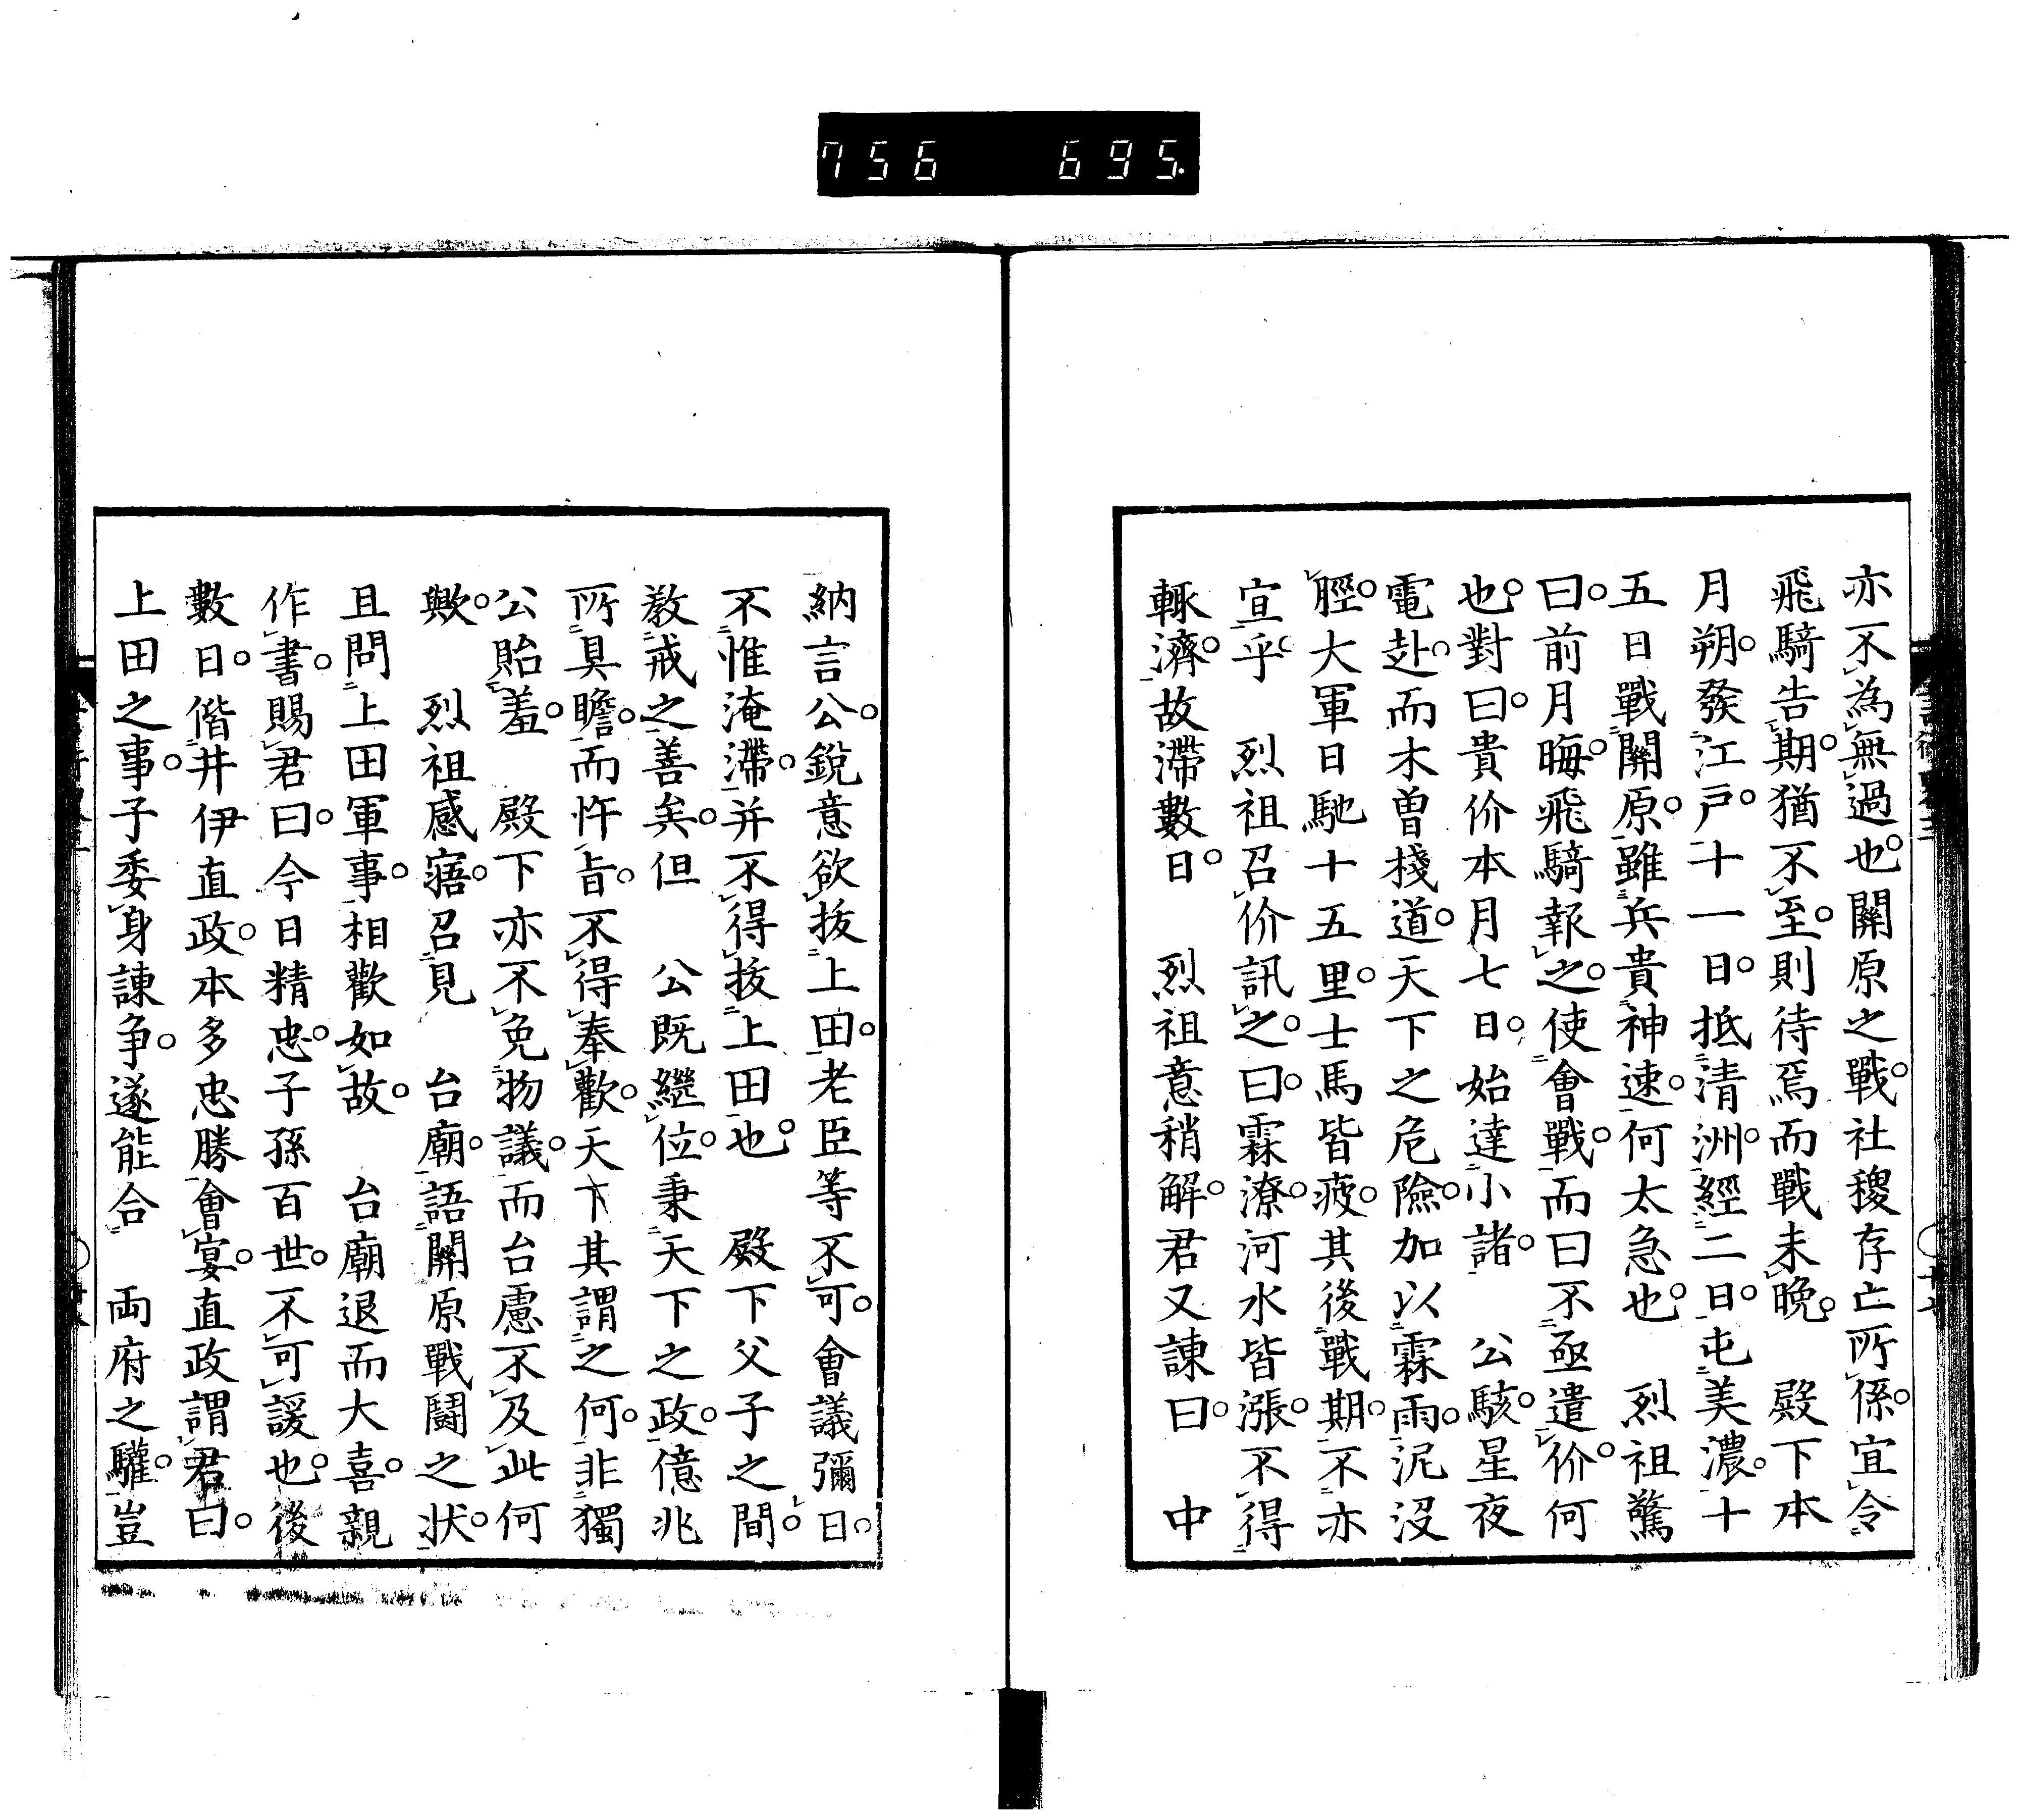 756 695.
亦不為無過也。關原之戰。社稷存亡所係。宜令
飛騎告期。猶不至。則待焉而戰未晚。 殿下本
月朔。發江戸。十一日。抵清洲。經二日。屯美濃。十
五日戰關原。雖兵貴神速。何太急也。 烈祖驚
曰。前月晦。飛騎報之。使會戰。而曰不亟遣价。何
也。對曰。貴价本月七日。始達小諸。 公駭。星夜
電赴。而木曽棧道。天下之危險。加以霖雨。泥没
脛。大軍日馳十五里。士馬皆疲。其後戰期。不亦
宜乎。 烈祖召价訊之。曰。霖潦。河水皆漲。不得
輙濟。故滯數日。 烈祖意稍解。君又諫曰。 中
納言公。銳意欲抜上田。老臣等不可。會議彌日。
不惟淹滯。并不得抜上田也。 殿下父子之間。
敎戒之善矣。但 公既繼位。秉天下之政。億兆
所具瞻。而忤旨。不得奉歡。天下其謂之何。非獨
公貽羞。 殿下亦不免物議。而台慮不及此何
歟。 烈祖感寤。召見 台廟。語關原戰鬪之状。
且問上田軍事。相歡如故。 台廟退而大喜。親
作書。賜君曰。今日精忠。子孫百世。不可諼也。後
數日。偕井伊直政。本多忠勝會宴。直政謂君曰。
上田之事。子委身諫争。遂能合 両府之驩。豈